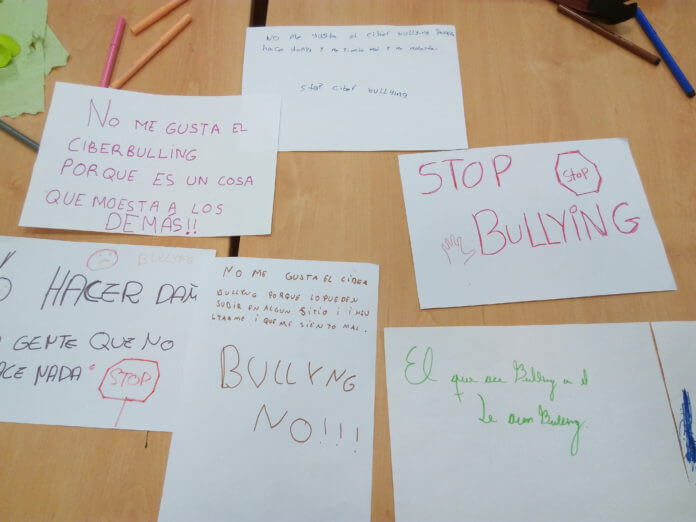 NO ME GUSTA EL CIBER BULLYING PORQUE
hace daño y me siento mal y me molesta.
STOP CIBER BULLYING
NO ME GUSTA EL
CIBERBULLING
PORQUE ES UN COSA
QUE MOESTA A LOS
DEMÁS!!
STOP
STOP
BULLYING
BULLYING
O HACER DAÑ
GENTE QUE NO
ACE NADA
STOP
NO ME GUSTA EL CIBER
BULLYNG PORQUE LO PUEDEN
SUBIR EN ALGUN SITIO I INSU
LTARME I QUE ME SIENTO MAL.
BULLYNG
NO!!!
El que ace Bulling a el
Le acen Bulling.